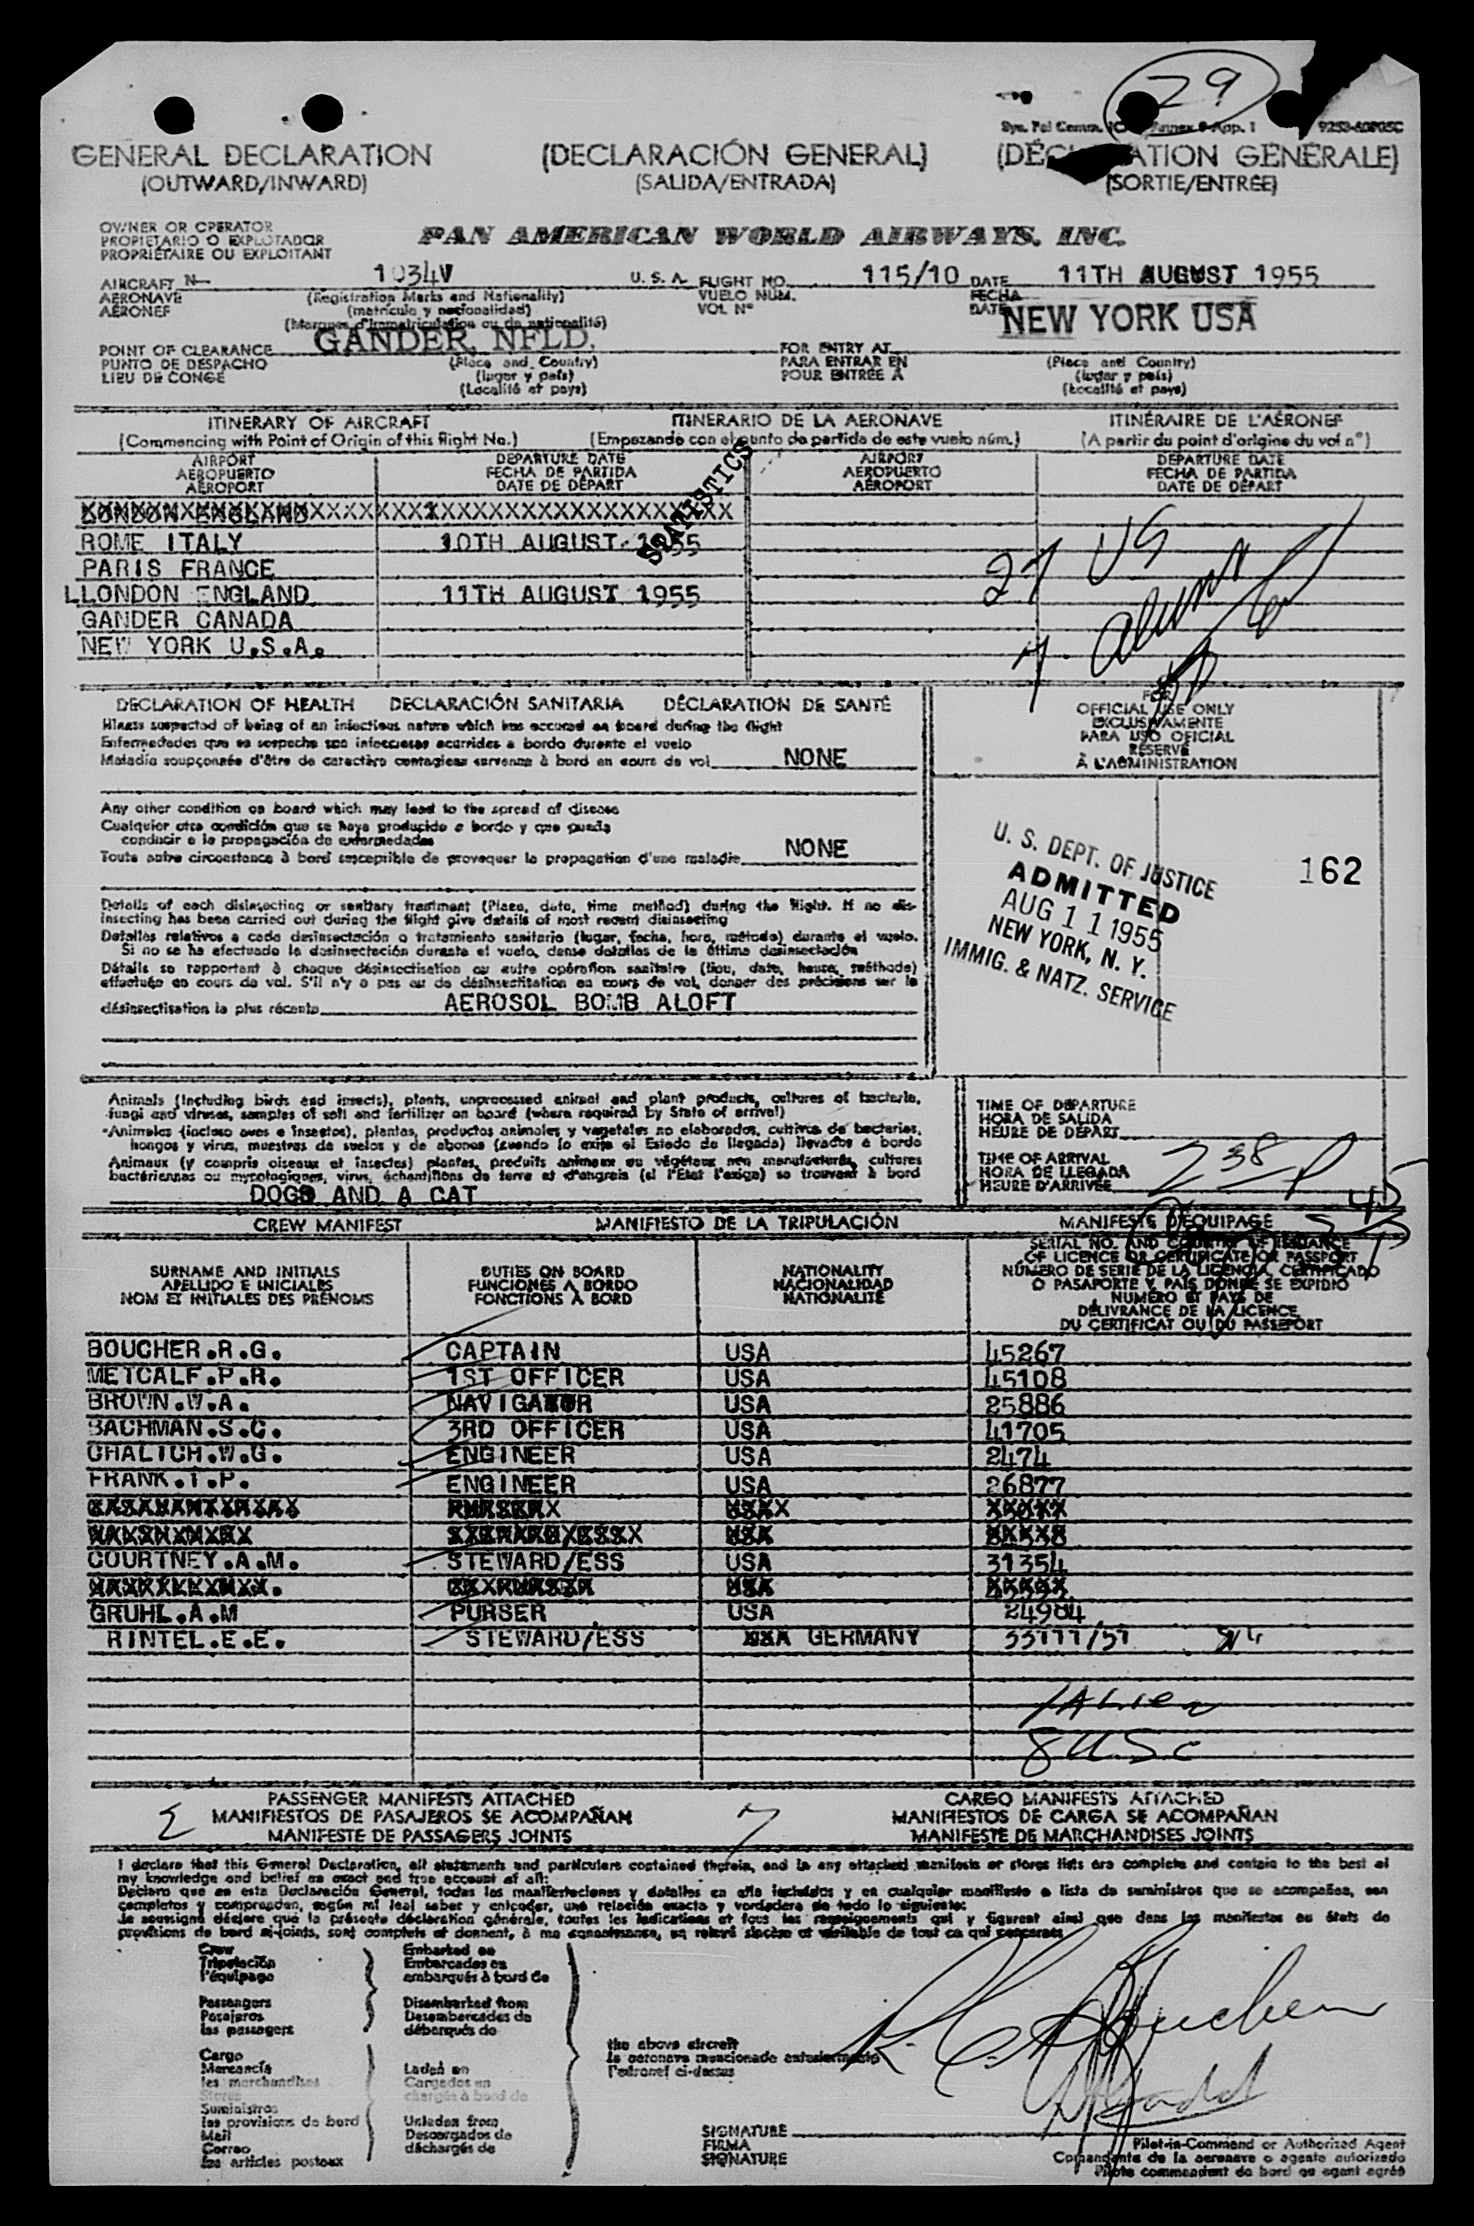 29
GENERAL DECLARATION (DECLARACIÓN GENERAL) ATION GÉNÉRALE)
(OUTWARD/INWARD) (SALIDA/ENTRADA) (SORTIE/ENTRÉE)
OWNER OR OPERATOR
PROPIETARIO O EXPLOTADOR
PROPRIÉTAIRE OU EXPLOITANT
PAN AMERICAN WORLD AIRWAYS, INC.
AIRCRAFT N— 1034V U. S. A. FLIGHT NO. 115/10 DATE 11TH AUGUST 1955
AERONAVE (Registration Marks and Nationality) VUELO NUM. FECHA
AÉRONEF (matrícula y nacionalidad) VOL N° DATE
(Marques d'immatriculation ou de nationalité)
POINT OF CLEARANCE GANDER, NFLD. FOR ENTRY AT NEW YORK USA
PUNTO DE DESPACHO (Place and Country) PARA ENTRAR EN (Place and Country)
LIEU DE CONGÉ (lugar y país) POUR ENTRÉE À (lugar y país)
(Localité et pays) (Localité et pays)
ITINERARY OF AIRCRAFT ITINERARIO DE LA AERONAVE ITINÉRAIRE DE L'AÉRONEF
(Commencing with Point of Origin of this Flight No.) (Empezando con el punto de partida de este vuelo núm.) (A partir du point d'origine du vol n°)
AIRPORT DEPARTURE DATE AIRPORT DEPARTURE DATE
AEROPUERTO FECHA DE PARTIDA AEROPUERTO FECHA DE PARTIDA
AÉROPORT DATE DE DÉPART AÉROPORT DATE DE DÉPART
STATISTICS
LONDON ENGLAND
ROME ITALY 10TH AUGUST 1955
PARIS FRANCE
LLONDON ENGLAND 11TH AUGUST 1955
GANDER CANADA
NEW YORK U.S.A.
27 US
DECLARATION OF HEALTH DECLARACIÓN SANITARIA DÉCLARATION DE SANTÉ
Illness suspected of being of an infectious nature which has occured on board during the flight
Enfermedades que se sospecha son infecciosas ocurridas a bordo durante el vuelo
Maladie soupçonnée d'être de caractère contagieux survenue à bord en cours de vol NONE
Any other condition on board which may lead to the spread of disease
Cualquier otra condición que se haya producido a bordo y que pueda
conducir a la propagación de enfermedades
Toute autre circonstance à bord susceptible de provoquer la propagation d'une maladie NONE
Details of each disinsecting or sanitary treatment (Place, date, time method) during the flight. If no dis-
insecting has been carried out during the flight give details of most recent disinsecting
Detalles relativos a cada desinsectación o tratamiento sanitario (lugar, fecha, hora, método) durante el vuelo.
Si no se ha efectuado la desinsectación durante el vuelo, dense detalles de la última desinsectación
Détails se rapportant à chaque désinsectisation ou autre opération sanitaire (lieu, date, heure, méthode)
effectuée en cours de vol. S'il n'y a pas eu de désinsectisation en cours de vol, donner des précisions sur la
désinsectisation la plus récente AEROSOL BOMB ALOFT
FOR
OFFICIAL USE ONLY
EXCLUSIVAMENTE
PARA USO OFICIAL
RÉSERVÉ
À L'ADMINISTRATION
U. S. DEPT. OF JUSTICE
ADMITTED
AUG 11 1955
NEW YORK, N. Y.
IMMIG. & NATZ. SERVICE
162
Animals (Including birds and insects), plants, unprocessed animal and plant products, cultures of bacteria,
fungi and viruses, samples of soil and fertilizer on board (where required by State of arrival)
Animales (incluso aves e insectos), plantas, productos animales y vegetales no elaborados, cultivos de bacterias,
hongos y virus, muestras de suelos y de abonos (cuando lo exija el Estado de llegada) llevados a bordo
Animaux (y compris oiseaux et insectes) plantes, produits animaux ou végétaux non manufacturés, cultures
bactériennes ou mycologiques, virus, échantillons de terre et d'engrais (si l'Etat l'exige) se trouvant à bord
DOGS AND A CAT
TIME OF DEPARTURE
HORA DE SALIDA
HEURE DE DÉPART
TIME OF ARRIVAL
HORA DE LLEGADA
HEURE D'ARRIVÉE 238P
CREW MANIFEST MANIFIESTO DE LA TRIPULACIÓN MANIFESTE D'ÉQUIPAGE
SURNAME AND INITIALS
APELLIDO E INICIALES
NOM ET INITIALES DES PRÉNOMS
DUTIES ON BOARD
FUNCIONES A BORDO
FONCTIONS À BORD
NATIONALITY
NACIONALIDAD
NATIONALITÉ
SERIAL NO. AND COUNTRY OF ISSUANCE
OF LICENCE OR CERTIFICATE OR PASSPORT
NÚMERO DE SERIE DE LA LICENCIA, CERTIFICADO
O PASAPORTE Y PAÍS DONDE SE EXPIDIÓ
NUMÉRO ET PAYS DE
DÉLIVRANCE DE LA LICENCE
DU CERTIFICAT OU DU PASSEPORT
BOUCHER.R.G. CAPTAIN USA 45267
METCALF.P.R. 1ST OFFICER USA 45108
BROWN.W.A. NAVIGATOR USA 25886
BACHMAN.S.C. 3RD OFFICER USA 41705
CHALICH.W.G. ENGINEER USA 2474
FRANK.T.P. ENGINEER USA 26877
COURTNEY.A.M. STEWARD/ESS USA 31354
GRUHL.A.M PURSER USA 24984
RINTEL.E.E. STEWARD/ESS GERMANY 33111/51
1 Alien
8 USC
2 PASSENGER MANIFESTS ATTACHED 7 CARGO MANIFESTS ATTACHED
MANIFIESTOS DE PASAJEROS SE ACOMPAÑAN MANIFIESTOS DE CARGA SE ACOMPAÑAN
MANIFESTE DE PASSAGERS JOINTS MANIFESTE DE MARCHANDISES JOINTS
I declare that this General Declaration, all statements and particulars contained therein, and in any attached manifests or stores lists are complete and contain to the best of
my knowledge and belief an exact and true account of all:
Declaro que en esta Declaración General, todas las manifestaciones y detalles en ella incluidos y en cualquier manifiesto o lista de suministros que se acompañen, son
completos y comprenden, según mi leal saber y entender, una relación exacta y verdadera de todo lo siguiente:
Je soussigné déclare que la présente déclaration générale, toutes les indications et tous les renseignements qui y figurent ainsi que dans les manifestes ou états de
provisions de bord ci-joints, sont complets et donnent, à ma connaissance, un relevé sincère et véritable de tout ce qui concerne:
Crew Embarked on
Tripulación Embarcados en
l'équipage embarqués à bord de
Passengers Disembarked from
Pasajeros Desembarcados de
les passagers débarqués de
Cargo
Mercancía Laden on
les marchandises Cargados en
Stores chargés à bord de
Suministros
les provisions de bord Unladen from
Mail Descargados de
Correo déchargés de
les articles postaux
the above aircraft
la aeronave mencionada anteriormente
l'aéronef ci-dessus
R. G. Boucher
SIGNATURE
FIRMA
SIGNATURE
Pilot-in-Command or Authorized Agent
Comandante de la aeronave o agente autorizado
Pilote commandant de bord ou agent agréé